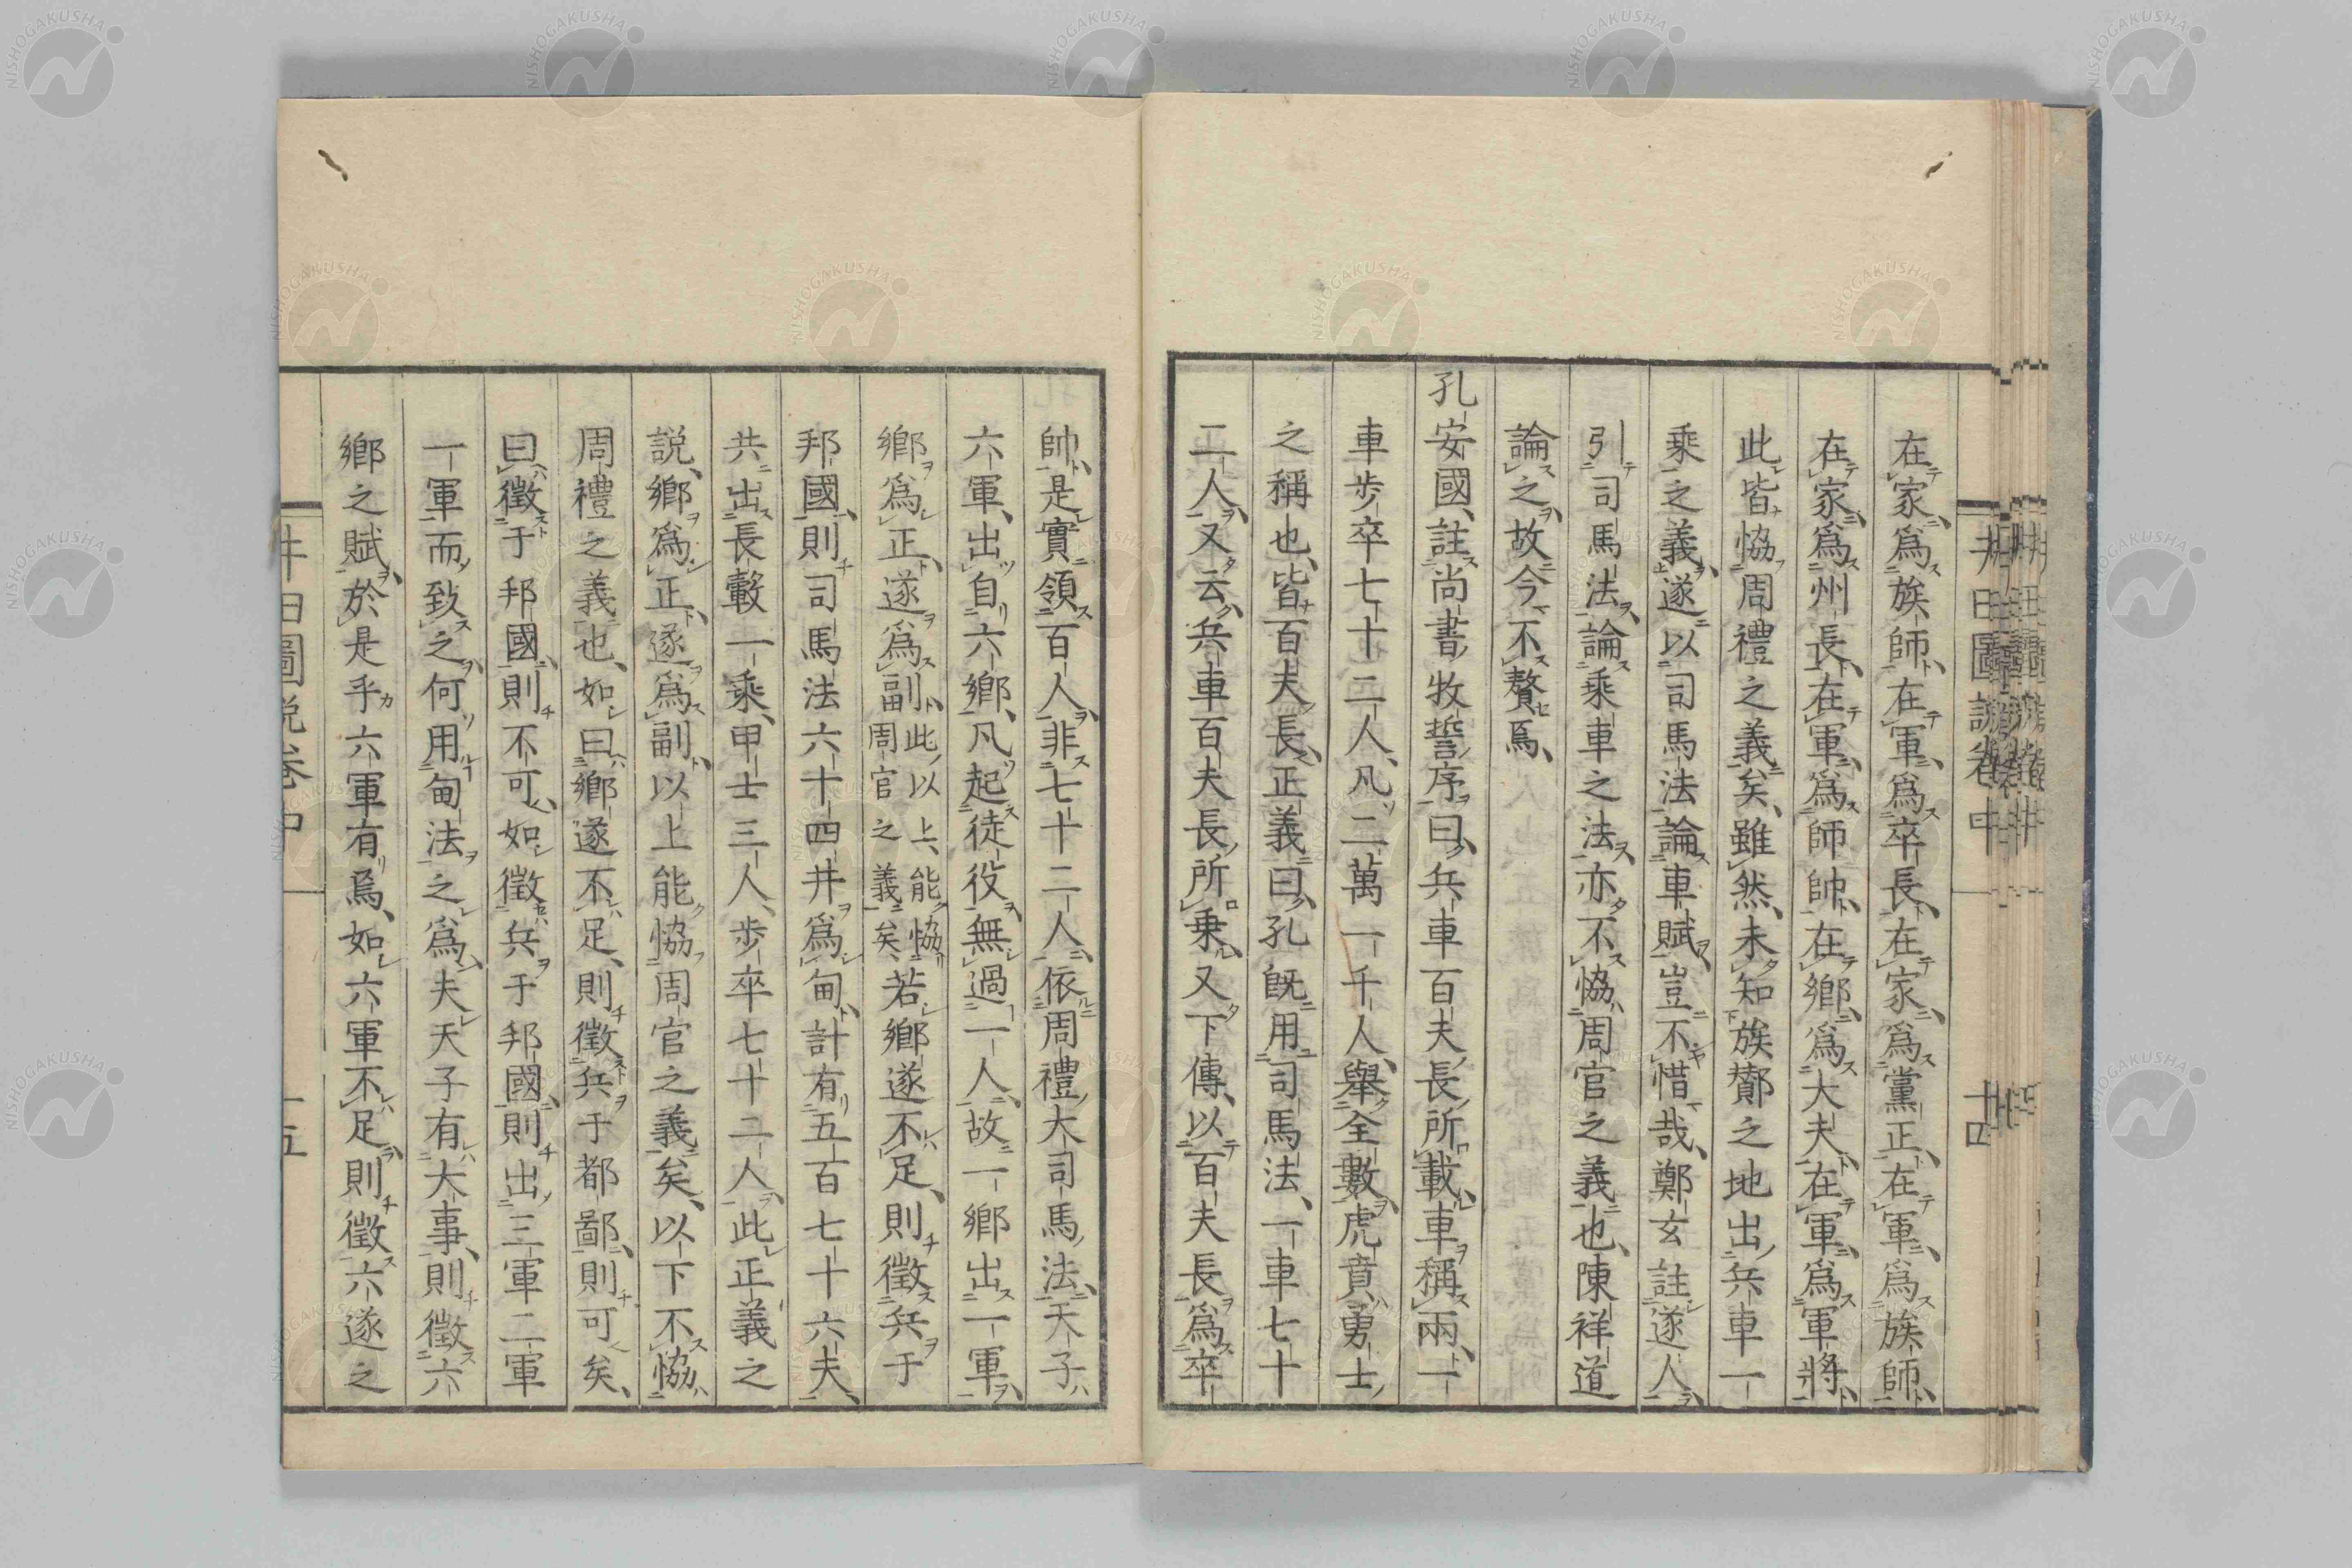 在家爲族師在軍爲卒長在家爲黨正在軍爲族師
在家爲州長在軍爲師帥在鄉爲大夫在軍爲軍將
此皆恊周禮之義矣雖然未知族酇之地出兵車一
乘之義遂以司馬法論車賦豈不惜哉鄭玄註遂人
引司馬法論乘車之法亦不恊周官之義也陳祥道
論之故今不贅焉
孔安國註尚書牧誓序曰兵車百夫長所載車稱兩一
車歩卒七十二人凡二萬一千人舉全數虎賁勇士
之稱也皆百夫長正義曰孔既用司馬法一車七十
二人又云兵車百夫長所乗又下傳以百夫長爲卒
帥是實領百人非七十二人依周禮大司馬法天子
六軍出自六鄉凡起徒役無過一人故一鄉出一軍
鄉爲正遂爲副此以上能恊周官之義矣若鄉遂不足則徵兵于
邦國則司馬法六十四井爲甸計有五百七十六夫
共出長轂一乘甲士三人歩卒七十二人此正義之
説鄉爲正遂爲副以上能恊周官之義矣以下不恊
周禮之義也如曰鄉遂不足則徵兵于都鄙則可矣
曰徵于邦國則不可如徵兵于邦國則出三軍二軍
一軍而致之何用甸法之爲夫天子有大事則徵六
鄉之賦於是乎六軍有焉如六軍不足則徵六遂之
井田圖説卷中
十四
井田圖説卷中
十五
NISHOGAKUSHA